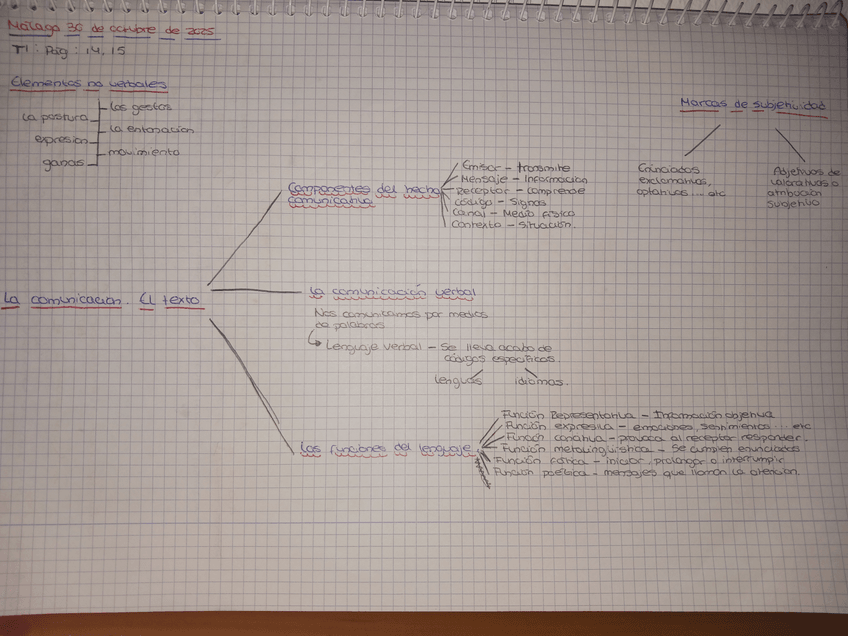 Málaga 30 de octubre de 2025
T1: Pág: 14, 15
Elementos no verbales
los gestos
la postura
la entonación
expresión
movimiento
ganas
Marcas de subjetividad
Enunciados
exclamativas,
optativos... etc
Adjetivos de
valorativos o
atribución
subjetivo
Componentes del hecho
comunicativo
Emisor – transmite
Mensaje – Información
Receptor – comprende
Código – Signos
Canal – Medio físico
Contexto – Situación.
La comunicación. El texto
La comunicación verbal
Nos comunicamos por medios
de palabras
Lenguaje verbal – Se lleva acabo de
códigos específicos.
lenguas idiomas.
Las funciones del lenguaje
Función Representativa – Información objetiva
Función expresiva – emociones, sentimientos ... etc
Función conativa – provoca al receptor responder.
Función metalingüística – Se cumplen enunciados
Función fática – iniciar, prolongar o interrumpir
Función poética – mensajes que llaman la atención.